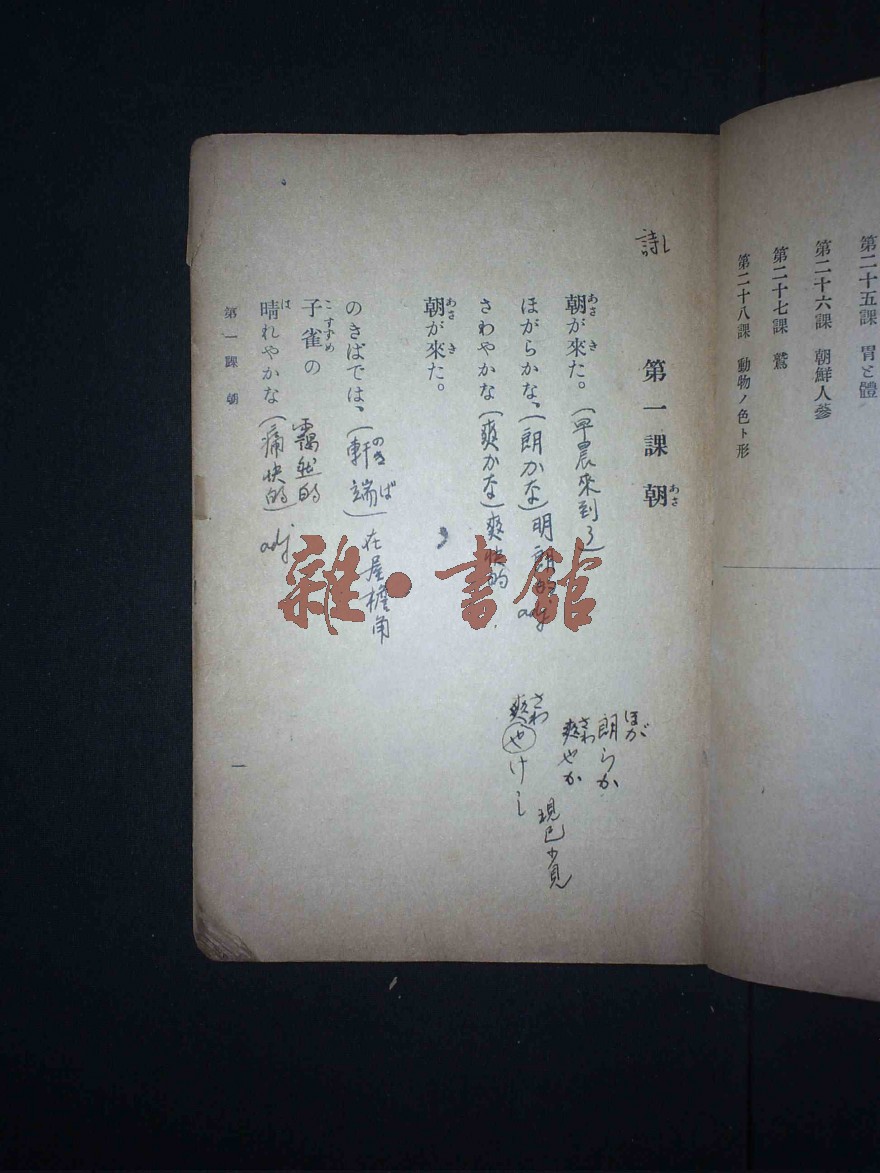 第二十五課　胃と體
第二十六課　朝鮮人蔘
第二十七課　鷲
第二十八課　動物ノ色ト形
詩し
第一課　朝
あさ
朝が來た。
あさ　き
(早晨來到了)
ほがらかな、
(朗かな)明朗的 adj
さわやかな
(爽かな)爽快的
朝が來た。
あさ　き
のきばでは、
(軒端)在屋檐角
のき　ば
子雀の
こすずめ
晴れやかな
は
靄然的
(痛快的) adj
朗らか
ほが
爽やか
さわ
爽やけし
さわ
現已少見
第一課　朝
一
雜·書館